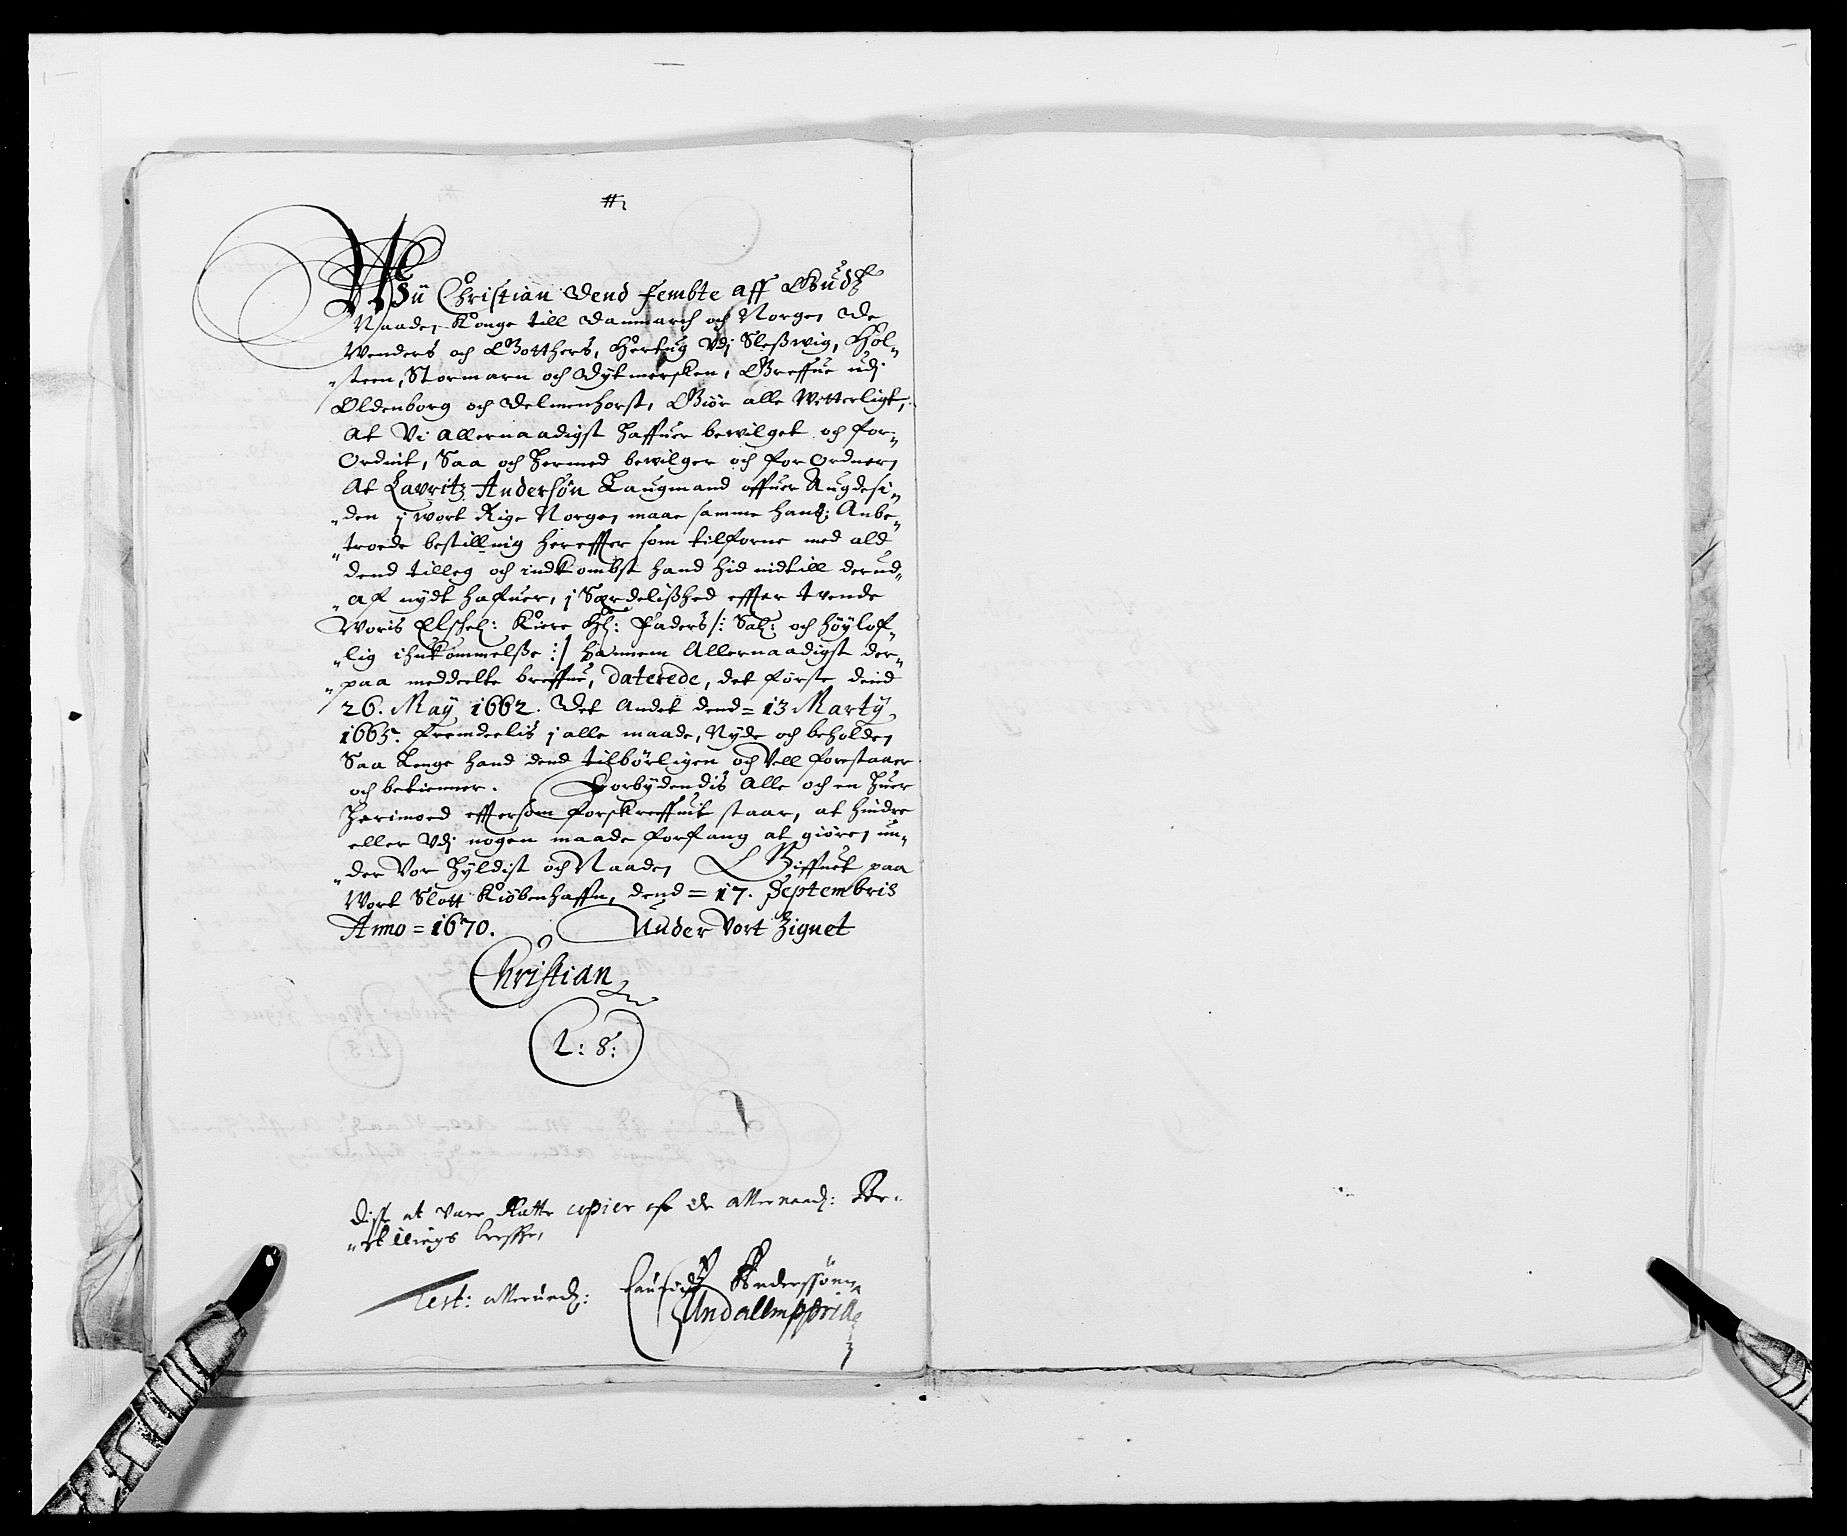 Wii Christian Dend Fembte aff Gudz
Naade, Konge till Danmarch och Norge, De
Wenders och Gotthers, Hertug Vdj Sleßwig, Hol„
„steen, Stormarn och Dytmersken, Greffue udj
Oldenborg och Delmenhorst, Giør alle Witterligt,
At Vi Allernaadigst haffuer bewilget och for„
Ordnit, Saa och hermed bewilger och forordner,
At Lavritz Andersøn Laugmand offuer Augdesi„
„den j wort Rige Norge, maae samme hans Anbe„
„troede bestillnig hereffter som tilforne med ald
dend tilleg och indkombst hand hid indtill derud„
„af nydt hafuer, j Særdelißhed effter tvende
Woris Elschel: Kiere Hr: Faders /: Sal: och høylof„
„lig ihukommelße :/ hannem Allernaadigst der„
„paa meddeelte breffue, Daterede, det første dend
26. Maÿ 1662. Det Andet dend = 13 Martÿ
1665. fremdeelis j alle maade, Nyde och beholde,
Saa Lenge hand dend tilbørligen och Vell forestaaer
och betienner. Forbydendis Alle och en huer
herimod eftersom forskreffuit staar, at hindre
eller Vdj nogen maade forfang at giøre, un„
„der Vor hyldist och Naade, Giffuet paa
Wort Slott Kiøbenhaffn, dend = 17. Septembris
Anno = 1670. Under Vort Zignet
Christian
L: S:
Disse at vere Rette copier af de allernaad: Be„
„stillings breffe,
Test: allerund: Lauridz Anderssønn
Undallmppria